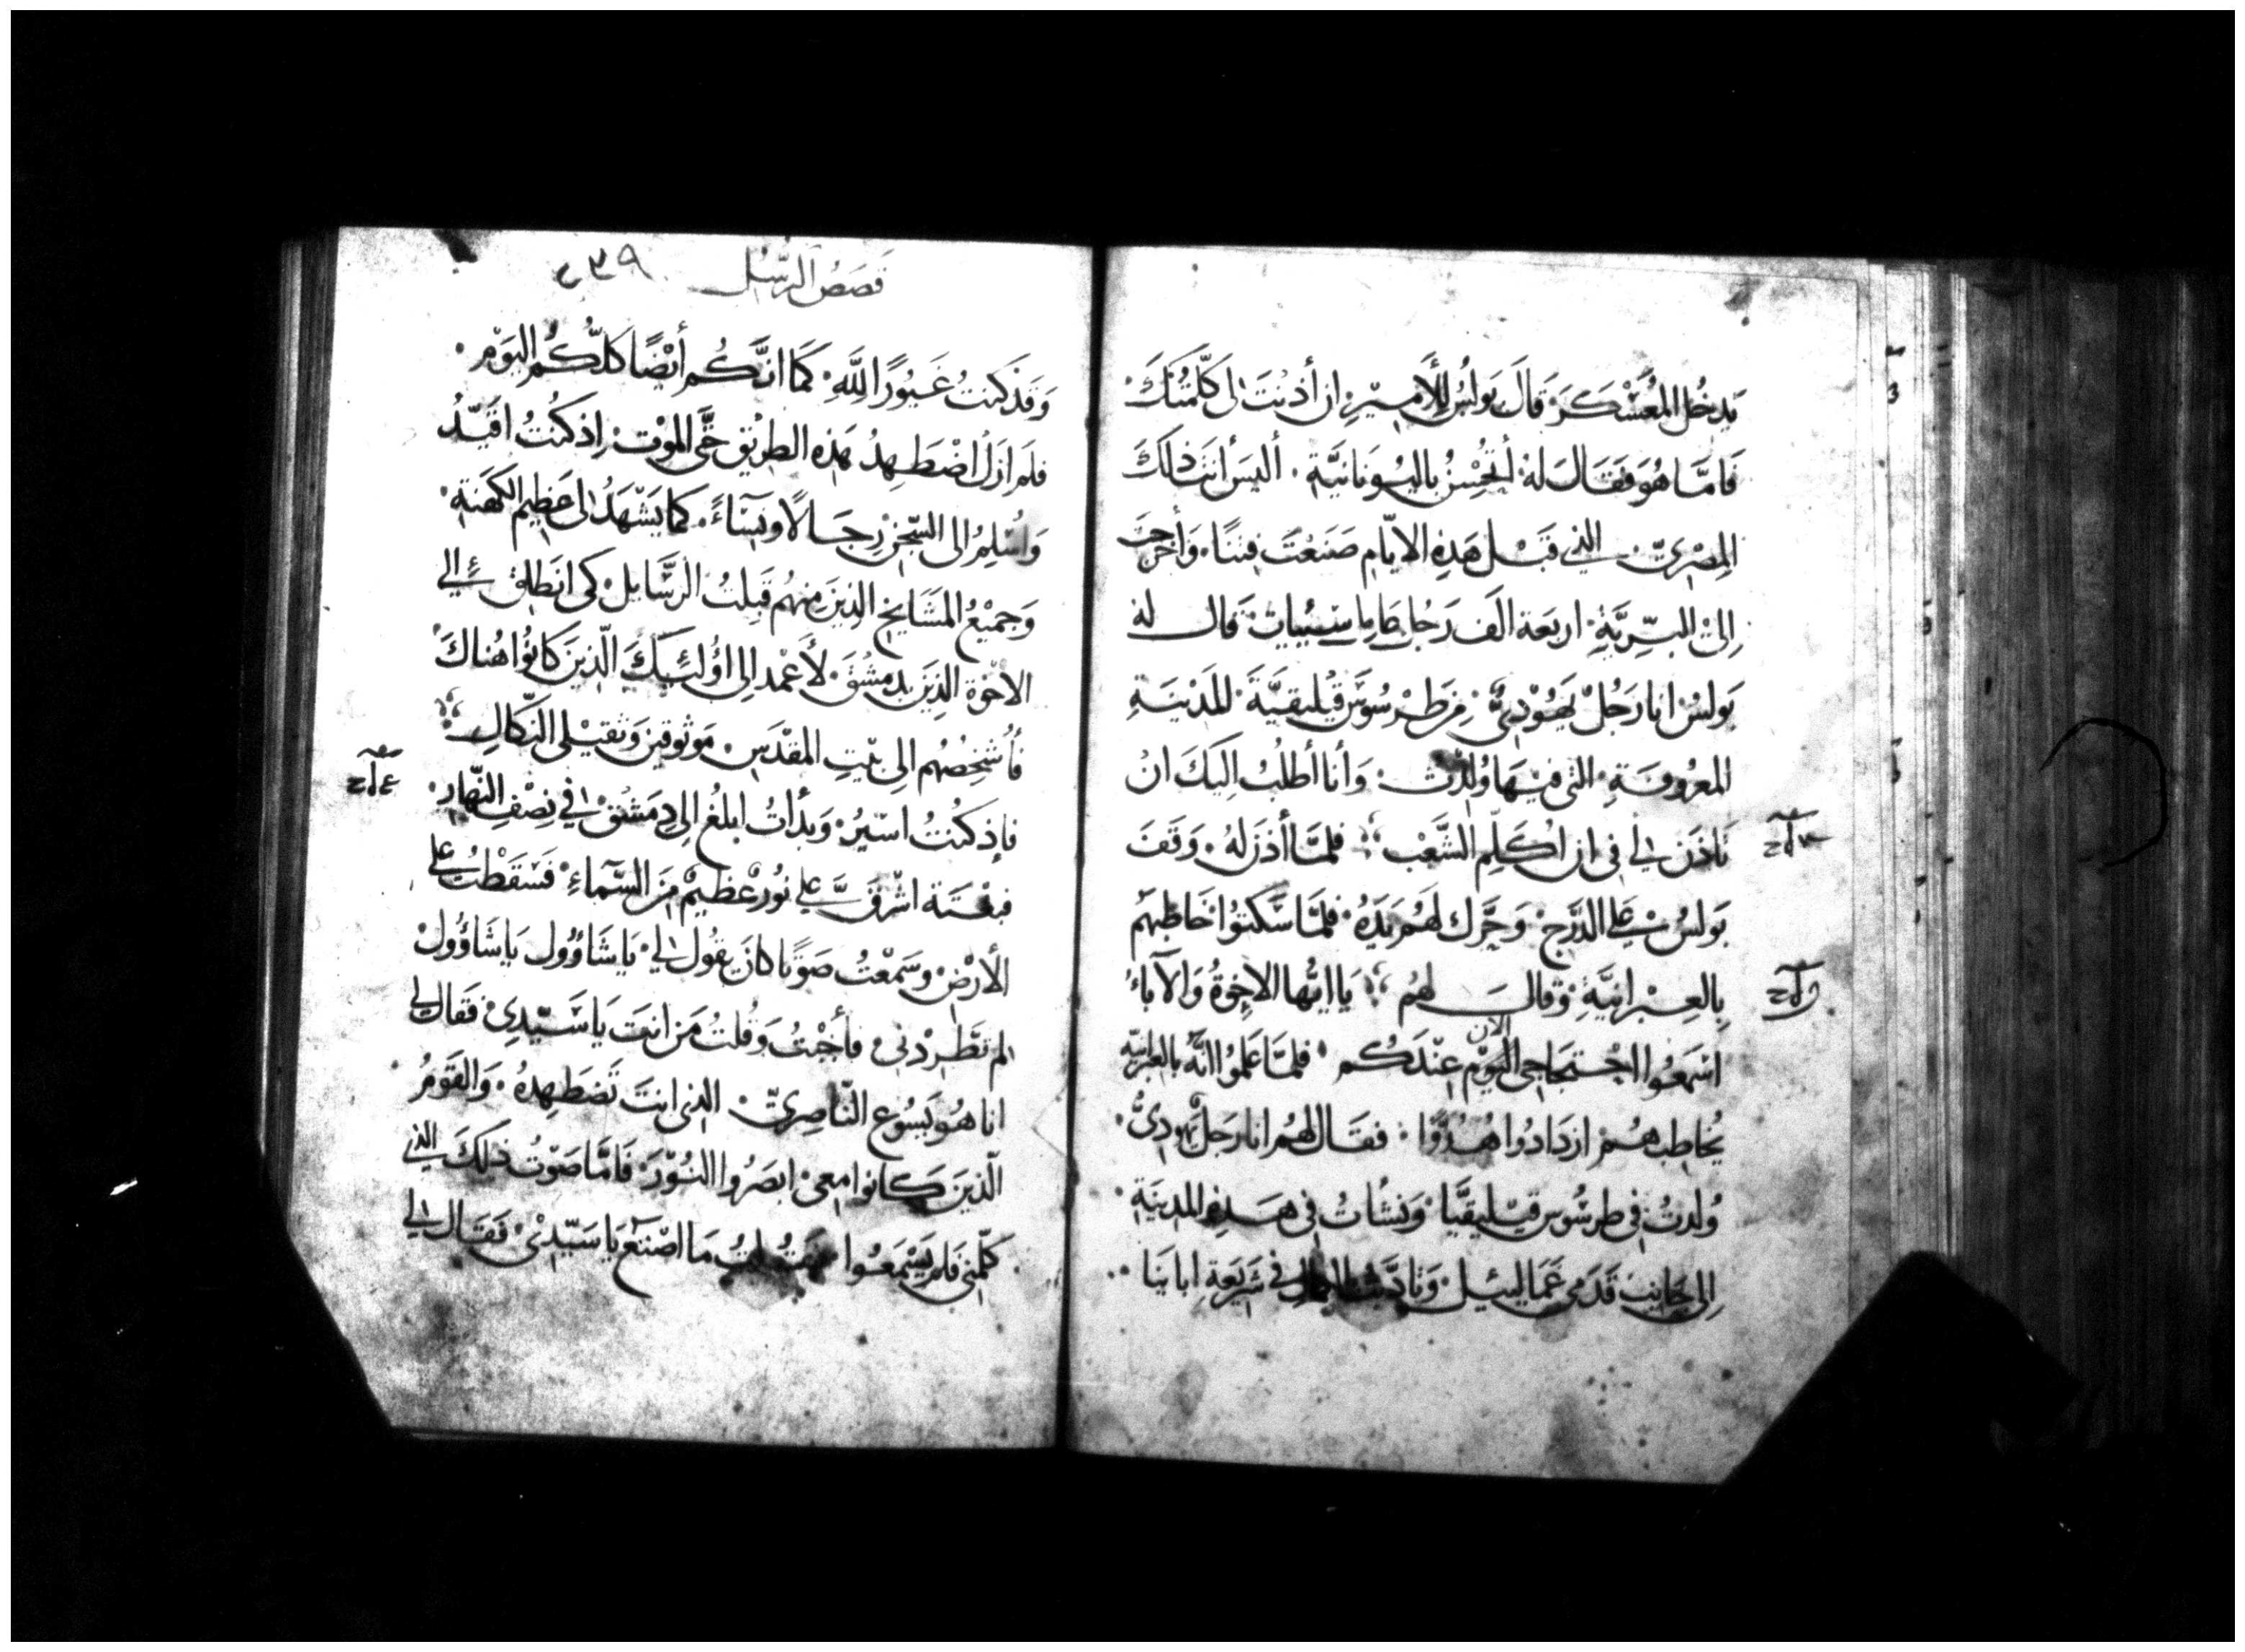 يدخُل المعَسْكرَ قالَ بَولسُ للأميْرِ ان أذنْتَ لى كَلّمتُكَ
فَامّا هُوَ فَقَالَ لهُ أتُحْسِنُ باليُونانيَّة أليسَ أنتَ ذلكَ
المِصْرىّ الذي قَبْل هَذِهِ الايّام صَنَعْتَ فِتنًا وَأخرَجتَ
إلىْ البرِّيَّةِ اربَعَة الَف رَجُل قال له
بَولسُ انا رَجُلْ يَهُوْدِىٌّ مِن طرْسُوسَ قيْليقيَّةَ المَدْيَنةِ
المعْرُوفَةِ التى فيْهَا وُلِدْتُ وَأنا أطلُبُ اِليَكَ انْ
تاذَن لي في ان اكلّم الشَّعْب فلمَّا أذنَ لهُ وَقَفَ
بَولسُ عَلى الدَّرَج وَحَرَّك لَهُم يَدَهُ فَلمَّا سَكتوُا خَاطبَهُم
بِالعِبْرانيَّةِ وَقالَ لهُم يَا ايُّها الاِخوَةُ وَالآباءُ
الان
اسْمَعُوا احْتجَاجى اليَوْم عِنْدَكُم فلمَّا عَلموُا انّهُ بالعبرانيّه
يُخاطبهُمْ ازدَادُوا هُدُوًّا فقَال لهُم انا رَجلٌ يَهودِىٌّ
وُلدتُ فى طرسُوس قيْليقيَّا وَنشأتُ فى هَذِهِ المدينَةِ
اِلى جَانِب قَدَمى غَمَاليئيل وَتادَّبتُ في شَريَعةِ ابايَنا
قَصَصُ الرّسُل ٢٣٩
وَقَد كنتُ غَيُورًا لِلّهِ كَمَا انَّكُم أيْضًا كلُّكُم اليَوْم
فلَم ازَل اضْطَهِدُ هَذه الطريْق حَتّى المَوْت اِذ كنْتُ اقَيِّدُ
وَاُسْلِمُ الى السّجْن رِجَالًا وَنِسَاءً كما يَشْهَدُ لى عَظيم الكهَنةِ
وَجَميْعُ المَشَايخِ الذِينَ مِنهُم قَبِلتُ الرَّسَايل كى انطَلق الي
الاخْوة الذِينَ بدمشْقَ لأعْمد الى اوُلئِيكَ الّذينَ كانوُا هُناكَ
فأُشخِصُهُم الى بَيْتِ المقدَسِ مَوثوقين وَثقيْلى النكالِ
فاِذ كنْتُ اسيْرُ وَبدَأتُ ابلغُ الى دِمَشْقَ في نِصْفِ النّهارِ
فَبغْتَة اشْرَقَ عَليَّ نُورٌ عَظيمٌ مِنَ السَّمَاءِ فَسَقَطْتُ على
الأرْضِ وَسَمعْتُ صَوتًا كانَ يَقُول لي يَا شَاؤُول يَا شَاؤُولْ
لم تَطْرِدْنى فأجَبْتُ وَقُلتُ مَن انتَ يَا سَيّدِى فقَال لى
انا هُو يَسُوع النّاصِرىّ الذى انتَ تَضطَهِدهُ وَالقَومُ
الّذينَ كانوا مَعِىْ ابصَرُوا النُوْرَ فَامَّا صَوْتُ ذلكَ الذي
كلَّمِنى فَلم يَسْمَعُوا مَا اصْنَع يَا سَيّدِىْ فَقَال لى